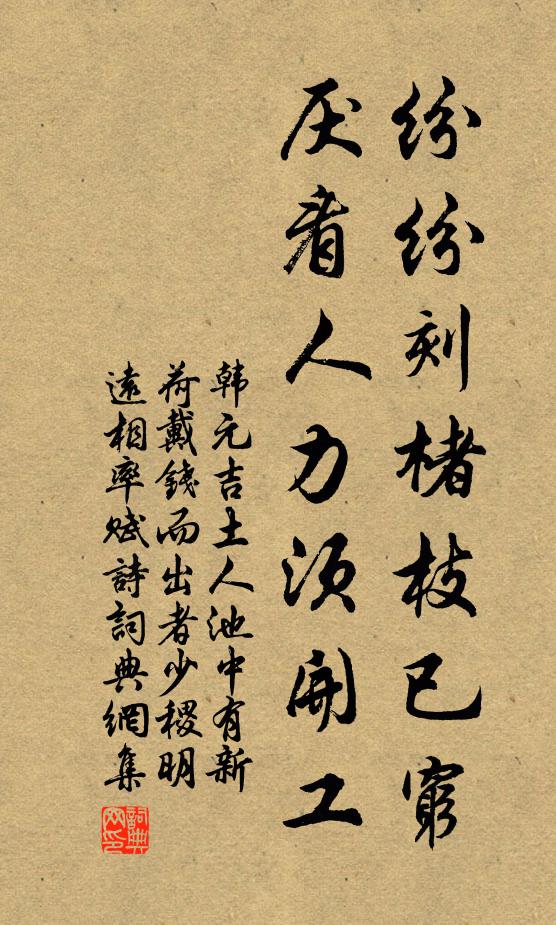 纷纷刻楮枝已窮
厌看人力须開工
韩元吉士人池中有新
荷戴錢而出者少稷明
遠相率賦詩詞典網集
詞典
网印